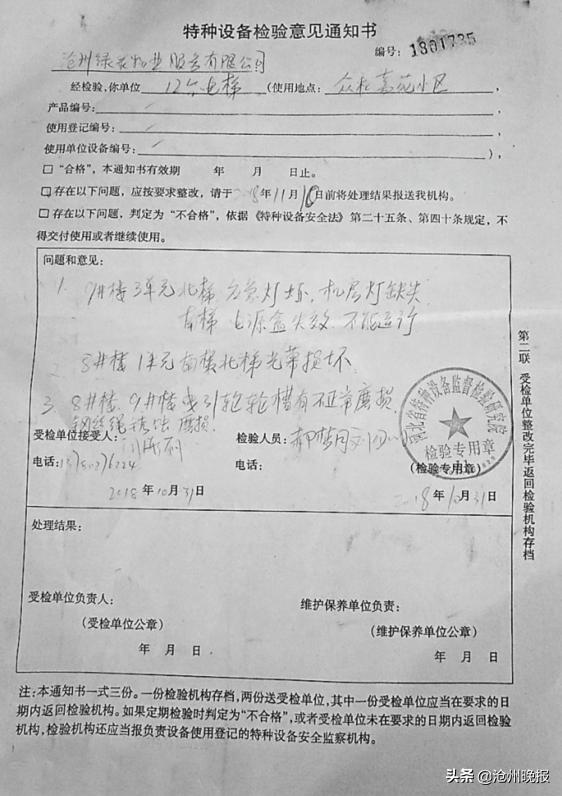 特种设备检验意见通知书
编号：1801735
沧州绿农物业服务有限公司
经检验，你单位 12台电梯 （使用地点： 众杜嘉苑小区
产品编号：
使用登记编号：
使用单位设备编号： ），
□“合格”，本通知书有效期 年 月 日止。
□存在以下问题，应按要求整改，请于 18年11月10日前将处理结果报送我机构。
□存在以下问题，判定为“不合格”，依据《特种设备安全法》第二十五条、第四十条规定，不
得交付使用或者继续使用。
问题和意见：
1. 9#楼3单元北梯 应急灯坏，机房灯缺失
南梯 电源盒失效 不能运行
2. 8#楼 1单元南梯北梯光幕损坏
3. 8#楼、9#楼曳引轮轮槽有不正常磨损
钢丝绳锈蚀磨损
受检单位接受人：
检验人员：
电话：
电话：
（检验专用章）
2018年10月31日
2018年10月31日
河北省特种设备监督检验研究院
检验专用章
处理结果：
受检单位负责人：
维护保养单位负责：
（受检单位公章）
（维护保养单位公章）
年 月 日
年 月 日
第二联 受检单位整改完毕返回检验机构存档
注：本通知书一式三份。一份检验机构存档，两份送受检单位，其中一份受检单位应当在要求的日
期内返回检验机构。如果定期检验时判定为“不合格”，或者受检单位未在要求的日期内返回检验
机构，检验机构还应当报负责设备使用登记的特种设备安全监察机构。
头条 @沧州晚报